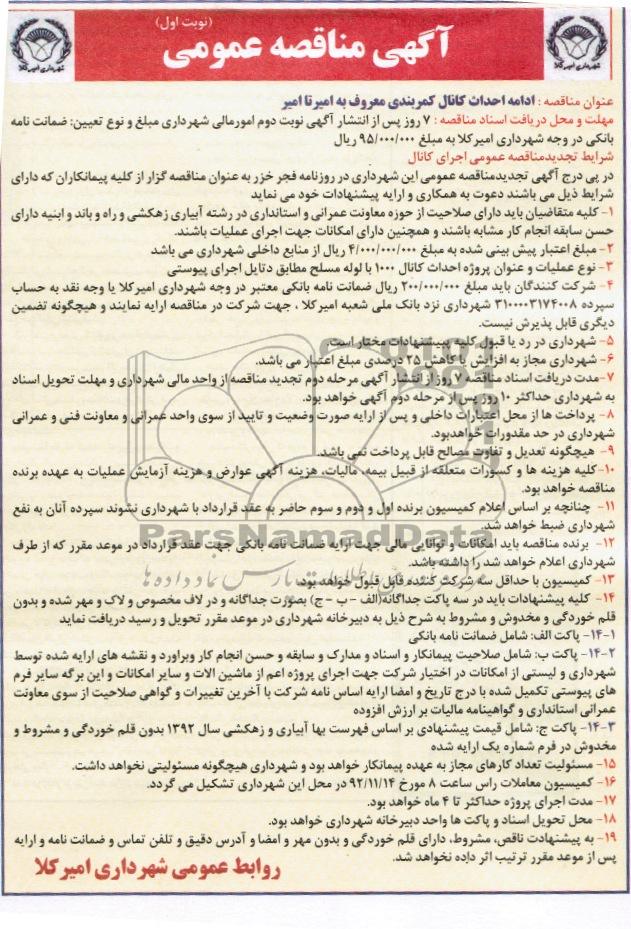 (نوبت اول)
آگهی مناقصه عمومی
شهرداری امیرکلا
شهرداری امیرکلا
عنوان مناقصه : ادامه احداث کانال کمربندی معروف به امیرتا امیر
مهلت و محل دریافت اسناد مناقصه : ۷ روز پس از انتشار آگهی نوبت دوم امورمالی شهرداری مبلغ و نوع تعیین: ضمانت نامه
بانکی در وجه شهرداری امیرکلا به مبلغ ۹۵/۰۰۰/۰۰۰ ریال
شرایط تجدیدمناقصه عمومی اجرای کانال
در پی درج آگهی تجدیدمناقصه عمومی این شهرداری در روزنامه فجر خزر به عنوان مناقصه گزار از کلیه پیمانکاران که دارای
شرایط ذیل می باشند دعوت به همکاری و ارایه پیشنهادات خود می نماید
۱- کلیه متقاضیان باید دارای صلاحیت از حوزه معاونت عمرانی و استانداری در رشته آبیاری زهکشی و راه و باند و ابنیه دارای
حسن سابقه انجام کار مشابه باشند و همچنین دارای امکانات جهت اجرای عملیات باشند.
۲- مبلغ اعتبار پیش بینی شده به مبلغ ۴/۰۰۰/۰۰۰/۰۰۰ ریال از منابع داخلی شهرداری می باشد
۳- نوع عملیات و عنوان پروژه احداث کانال ۱۰۰۰ با لوله مسلح مطابق دتایل اجرای پیوستی
۴- شرکت کنندگان باید مبلغ ۲۰۰/۰۰۰/۰۰۰ ریال ضمانت نامه بانکی معتبر در وجه شهرداری امیرکلا یا وجه نقد به حساب
سپرده ۳۱۰۰۰۰۳۱۷۴۰۰۸ شهرداری نزد بانک ملی شعبه امیرکلا ، جهت شرکت در مناقصه ارایه نمایند و هیچگونه تضمین
دیگری قابل پذیرش نیست.
۵- شهرداری در رد یا قبول کلیه پیشنهادات مختار است.
۶- شهرداری مجاز به افزایش یا کاهش ۲۵ درصدی مبلغ اعتبار می باشد.
۷-مدت دریافت اسناد مناقصه ۷ روز از انتشار آگهی مرحله دوم تجدید مناقصه از واحد مالی شهرداری و مهلت تحویل اسناد
به شهرداری حداکثر ۱۰ روز پس از مرحله دوم آگهی خواهد بود.
۸- پرداخت ها از محل اعتبارات داخلی و پس از ارایه صورت وضعیت و تایید از سوی واحد عمرانی و معاونت فنی و عمرانی
شهرداری در حد مقدورات خواهدبود.
۹- هیچگونه تعدیل و تفاوت مصالح قابل پرداخت نمی باشد.
۱۰-کلیه هزینه ها و کسورات متعلقه از قبیل بیمه، مالیات، هزینه آگهی عوارض و هزینه آزمایش عملیات به عهده برنده
مناقصه خواهد بود.
۱۱- چنانچه بر اساس اعلام کمیسیون برنده اول و دوم و سوم حاضر به عقد قرارداد با شهرداری نشوند سپرده آنان به نفع
شهرداری ضبط خواهد شد.
۱۲- برنده مناقصه باید امکانات و توانایی مالی جهت ارایه ضمانت نامه بانکی جهت عقد قرارداد در موعد مقرر که از طرف
شهرداری اعلام خواهد شد را داشته باشد.
۱۳- کمیسیون با حداقل سه شرکت کننده قابل قبول خواهد بود.
۱۴- کلیه پیشنهادات باید در سه پاکت جداگانه(الف - ب - ج) بصورت جداگانه و در لاف مخصوص و لاک و مهر شده و بدون
قلم خوردگی و مخدوش و مشروط به شرح ذیل به دبیرخانه شهرداری در موعد مقرر تحویل و رسید دریافت نماید
۱۴-۱- پاکت الف: شامل ضمانت نامه بانکی
۱۴-۲- پاکت ب: شامل صلاحیت پیمانکار و اسناد و مدارک و سابقه و حسن انجام کار وبراورد و نقشه های ارایه شده توسط
شهرداری و لیستی از امکانات در اختیار شرکت جهت اجرای پروژه اعم از ماشین الات و سایر امکانات و این برگه سایر فرم
های پیوستی تکمیل شده با درج تاریخ و امضا ارایه اساس نامه شرکت با آخرین تغییرات و گواهی صلاحیت از سوی معاونت
عمرانی استانداری و گواهینامه مالیات بر ارزش افزوده
۱۴-۳- پاکت ج: شامل قیمت پیشنهادی بر اساس فهرست بها آبیاری و زهکشی سال ۱۳۹۲ بدون قلم خوردگی و مشروط و
مخدوش در فرم شماره یک ارایه شده
۱۵- مسئولیت تعداد کارهای مجاز به عهده پیمانکار خواهد بود و شهرداری هیچگونه مسئولیتی نخواهد داشت.
۱۶- کمیسیون معاملات راس ساعت ۸ مورخ ۹۲/۱۱/۱۴ در محل این شهرداری تشکیل می گردد.
۱۷- مدت اجرای پروژه حداکثر تا ۴ ماه خواهد بود.
۱۸- محل تحویل اسناد و پاکت ها واحد دبیرخانه شهرداری خواهد بود.
۱۹- به پیشنهادت ناقص، مشروط، دارای قلم خوردگی و بدون مهر و امضا و آدرس دقیق و تلفن تماس و ضمانت نامه و ارایه
پس از موعد مقرر ترتیب اثر داده نخواهد شد.
روابط عمومی شهرداری امیرکلا
ParsNamadData